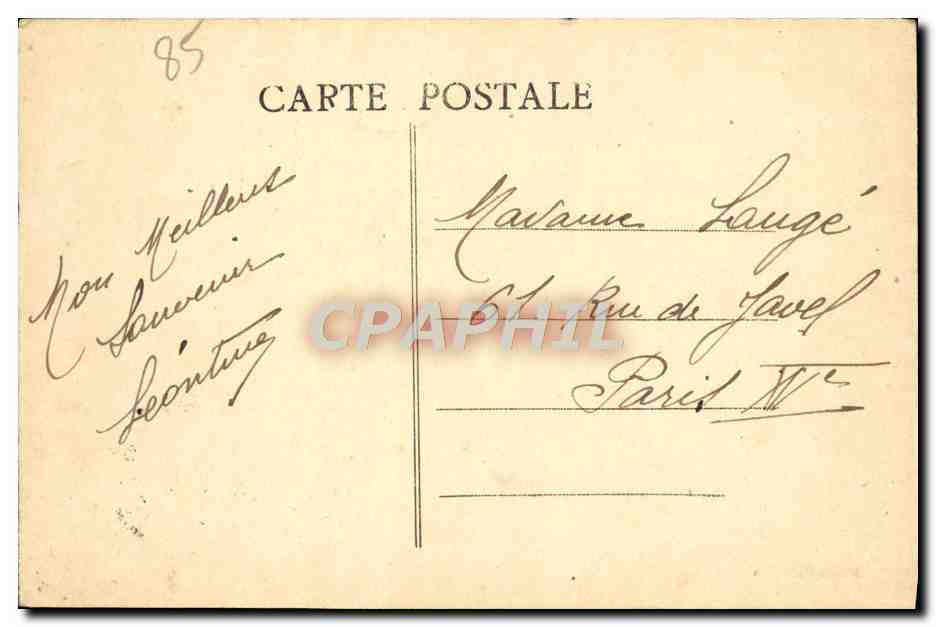 85
CARTE POSTALE
Mon Meilleurs
Souvenir
Léontine
Madame Laugé
61 Rue de Javel
Paris XVe
CPAPHIL